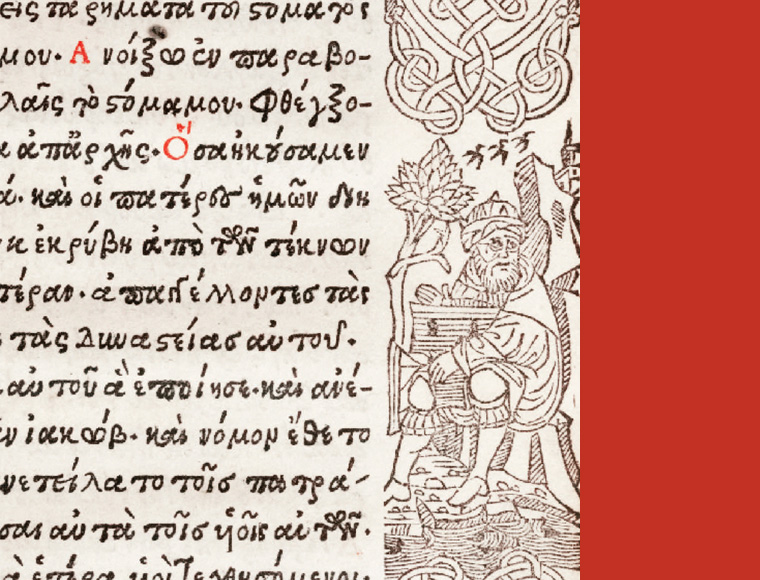 εις τὰ ρήματα τοῦ στόματός
μου. Ανοίξω ἐν παραβο-
λαῖς τὸ στόμα μου. Φθέγξο-
α ἀπἀρχῆς. Ὅσα ἠκούσαμεν
ά. καὶ οἱ πατέρες ἡμῶν διη
κ ἐκρύβη ἀπὸ τῶν τέκνων
τέραν. ἀπαγγέλλοντες τὰς
τὰς δυναστείας αὐτοῦ.
αὐτοῦ ἃ ἐποίησε. καὶ ἀνέ-
ἐν ἰακώβ. καὶ νόμον ἔθετο
νετείλατο τοῖς πατρά-
σαι αὐτὰ τοῖς υἱοῖς αὐτῶν.
ὰ ἑτέρα υἱοὶ τεχθησόμενοι.